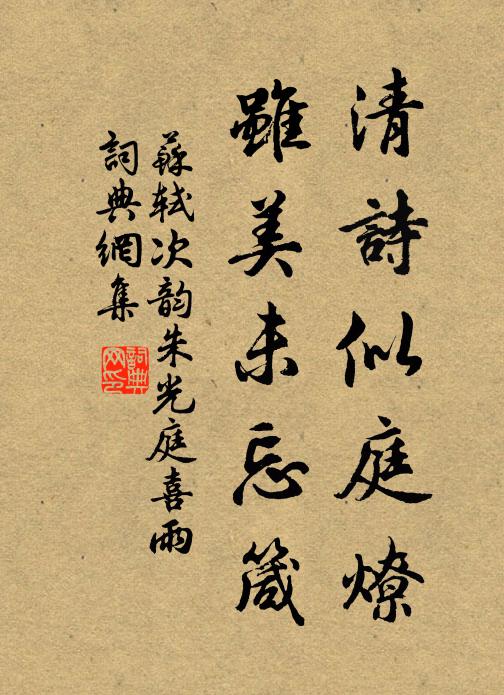 清詩似庭燎
雖美未忘箴
蘇軾次韵朱光庭喜雨
詞典網集
詞典
网印